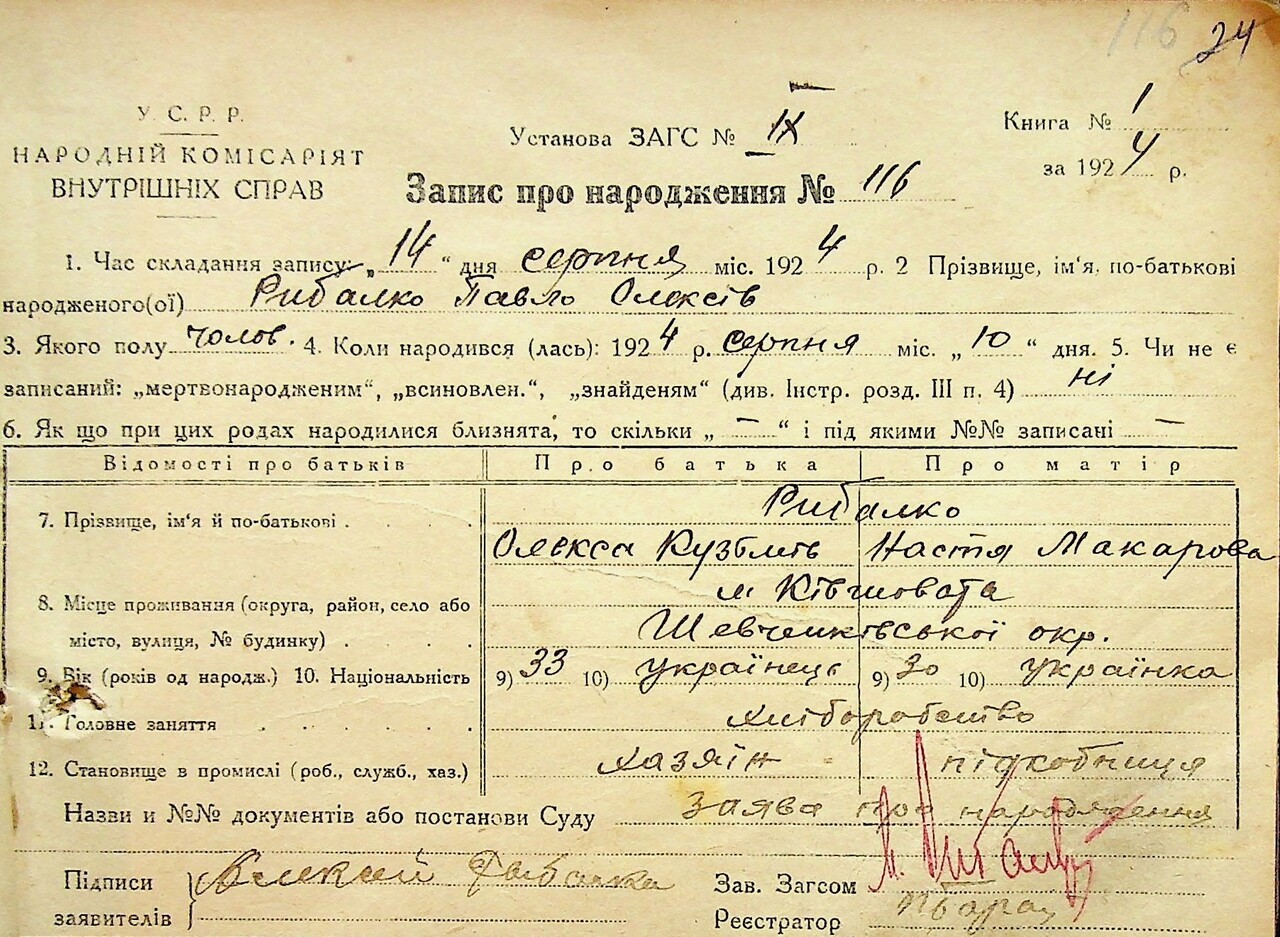 116 24
У. С. Р. Р.
НАРОДНІЙ КОМІСАРІЯТ
ВНУТРІШНІХ СПРАВ
Установа ЗАГС № IX
Книга № 1
за 1924 р.
Запис про народження № 116
1. Час складання запису: „14“ дня серпня міс. 1924 р. 2 Прізвище, ім'я, по-батькові
народженого(ої) Рибалко Павло Олексів
3. Якого полу чолов. 4. Коли народився (лась): 1924 р. серпня міс. „10“ дня. 5. Чи не є
записаний: „мертвонародженим“, „всиновлен.“, „знайденям“ (див. Інстр. розд. III п. 4) ні
6. Як що при цих родах народилися близнята, то скільки „—“ і під якими №№ записані —
Відомості про батьків Про батька Про матір
7. Прізвище, ім'я й по-батькові . . . . Рибалко
Олекса Кузьмів Настя Макарова
8. Місце проживання (округа, район, село або м Ківшовата
місто, вулиця, № будинку) . . . . Шевченківської окр.
9. Вік (років од народж.) 10. Національність 9) 33 10) українець 9) 30 10) українка
11. Головне заняття . . . . . . хліборобство
12. Становище в промислі (роб., служб., хаз.) хазяїн підсобниця
Назви и №№ документів або постанови Суду заява про народження
Підписи Рыбалка
заявителів
Зав. Загсом
Реєстратор